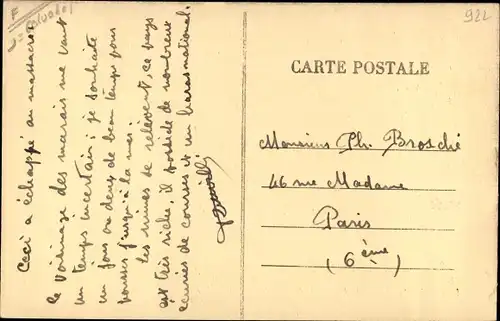 922
CARTE POSTALE
Ceci a échappé au massacre.
Le voisinage des marais me vaut
un temps incertain ; je souhaite
un jour ou deux de beau temps pour
pousser jusqu'à la mer.
Les ruines se relèvent, ce pays
est très riche, il possède de nombreuses
écuries de courses et un haras national.
Monsieur Ph. Brosché
46 rue Madame
Paris
(6ème)